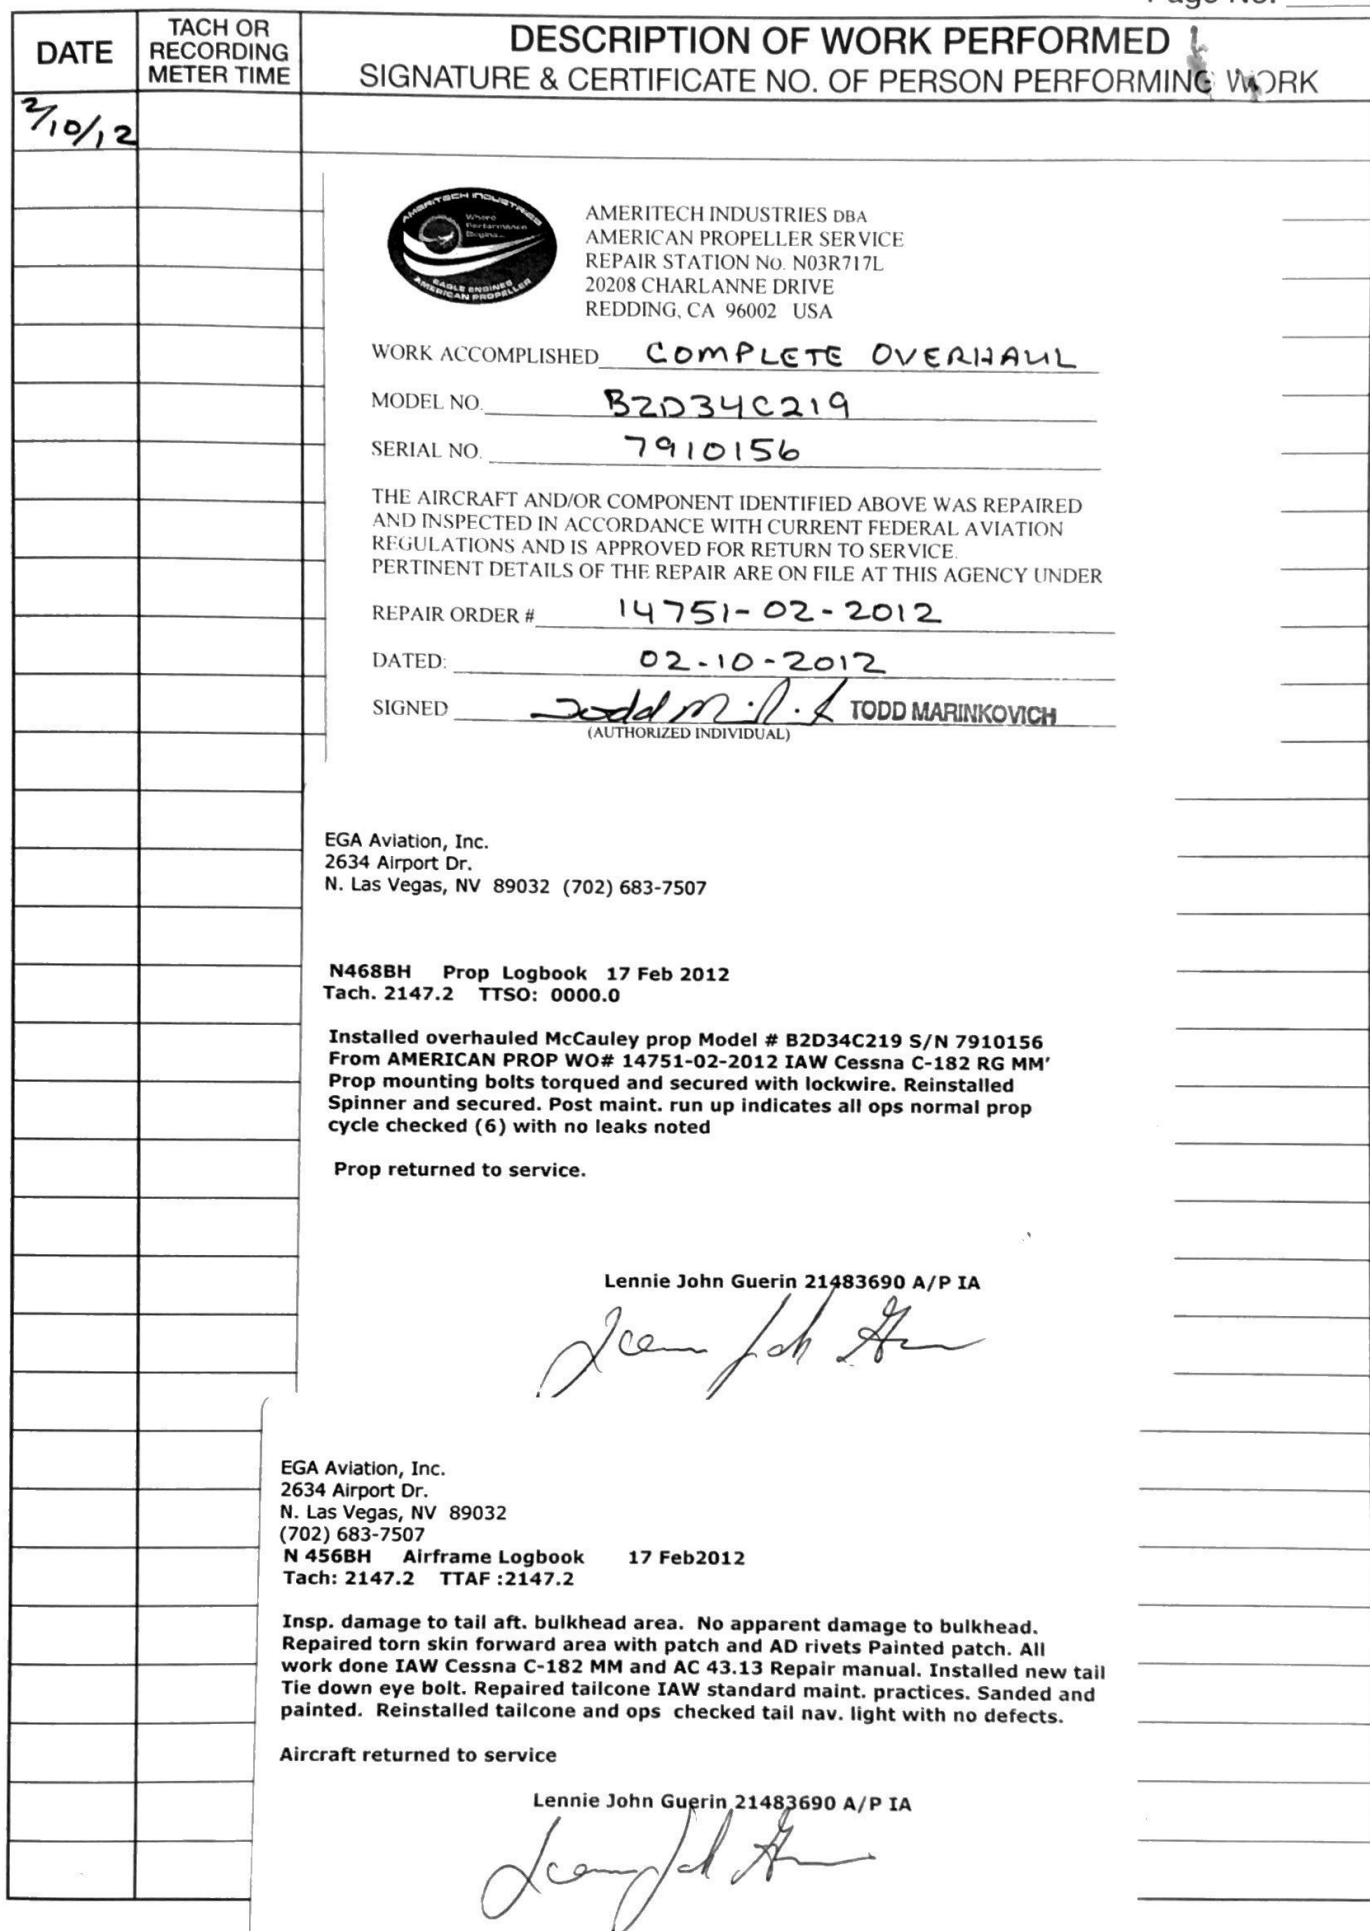 Page No.
DATE
TACH OR
RECORDING
METER TIME
DESCRIPTION OF WORK PERFORMED
SIGNATURE & CERTIFICATE NO. OF PERSON PERFORMING WORK
2/10/12
AMERITECH INDUSTRIES
Where
Performance
Begins...
EAGLE ENGINES
AMERICAN PROPELLER
AMERITECH INDUSTRIES DBA
AMERICAN PROPELLER SERVICE
REPAIR STATION No. N03R717L
20208 CHARLANNE DRIVE
REDDING, CA 96002 USA
WORK ACCOMPLISHED COMPLETE OVERHAUL
MODEL NO. B2D34C219
SERIAL NO. 7910156
THE AIRCRAFT AND/OR COMPONENT IDENTIFIED ABOVE WAS REPAIRED
AND INSPECTED IN ACCORDANCE WITH CURRENT FEDERAL AVIATION
REGULATIONS AND IS APPROVED FOR RETURN TO SERVICE.
PERTINENT DETAILS OF THE REPAIR ARE ON FILE AT THIS AGENCY UNDER
REPAIR ORDER # 14751-02-2012
DATED: 02-10-2012
SIGNED Todd TODD MARINKOVICH
(AUTHORIZED INDIVIDUAL)
EGA Aviation, Inc.
2634 Airport Dr.
N. Las Vegas, NV 89032 (702) 683-7507
N468BH Prop Logbook 17 Feb 2012
Tach. 2147.2 TTSO: 0000.0
Installed overhauled McCauley prop Model # B2D34C219 S/N 7910156
From AMERICAN PROP WO# 14751-02-2012 IAW Cessna C-182 RG MM'
Prop mounting bolts torqued and secured with lockwire. Reinstalled
Spinner and secured. Post maint. run up indicates all ops normal prop
cycle checked (6) with no leaks noted
Prop returned to service.
Lennie John Guerin 21483690 A/P IA
EGA Aviation, Inc.
2634 Airport Dr.
N. Las Vegas, NV 89032
(702) 683-7507
N 456BH Airframe Logbook 17 Feb2012
Tach: 2147.2 TTAF :2147.2
Insp. damage to tail aft. bulkhead area. No apparent damage to bulkhead.
Repaired torn skin forward area with patch and AD rivets Painted patch. All
work done IAW Cessna C-182 MM and AC 43.13 Repair manual. Installed new tail
Tie down eye bolt. Repaired tailcone IAW standard maint. practices. Sanded and
painted. Reinstalled tailcone and ops checked tail nav. light with no defects.
Aircraft returned to service
Lennie John Guerin 21483690 A/P IA